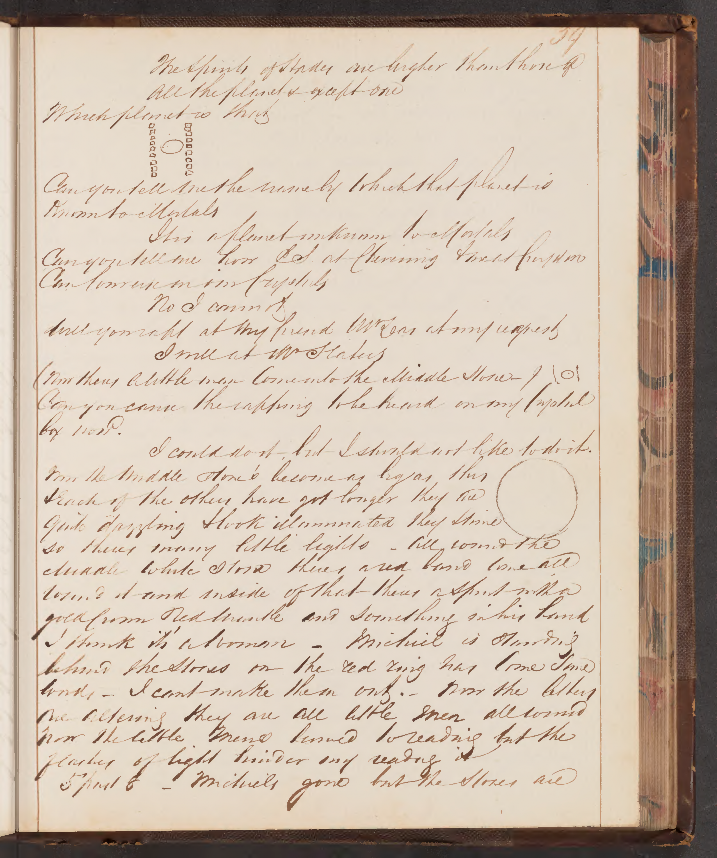 34
The Spirits of Hades are higher than those of
all the planets except one
Which planet is that
Can you tell me the name by which that planet is
known to Mortals
It is a planet unknown to Mortals
Can you tell me how at &
Can converse in our Crystals
No I cannot
will you rap at my friend Mr at my request
I will at Mr Slaters
(now theres a little man come into the Middle Stone)
Can you cause the rapping to be heard on my Crystal
box now.
I could do it but I should not like to do it.
now the Middle Stone's become as big as this
& each of the others have got longer they are
quite dazzling & look illuminated they shine
so theres many little lights - all round the
Middle White Stone theres a red band come all
round it and inside of that theres a spirit with a
gold crown Red Mantle and something in his hand
I think it's a woman - Michael is standing
behind the Stones on the red ring has come some
words - I cant make them out - now the letters
are altering they are all little men all round
now the little Mens turned to reading but the
flashes of light hinder my reading it
5 past 6 - Michaels gone but the Stones are